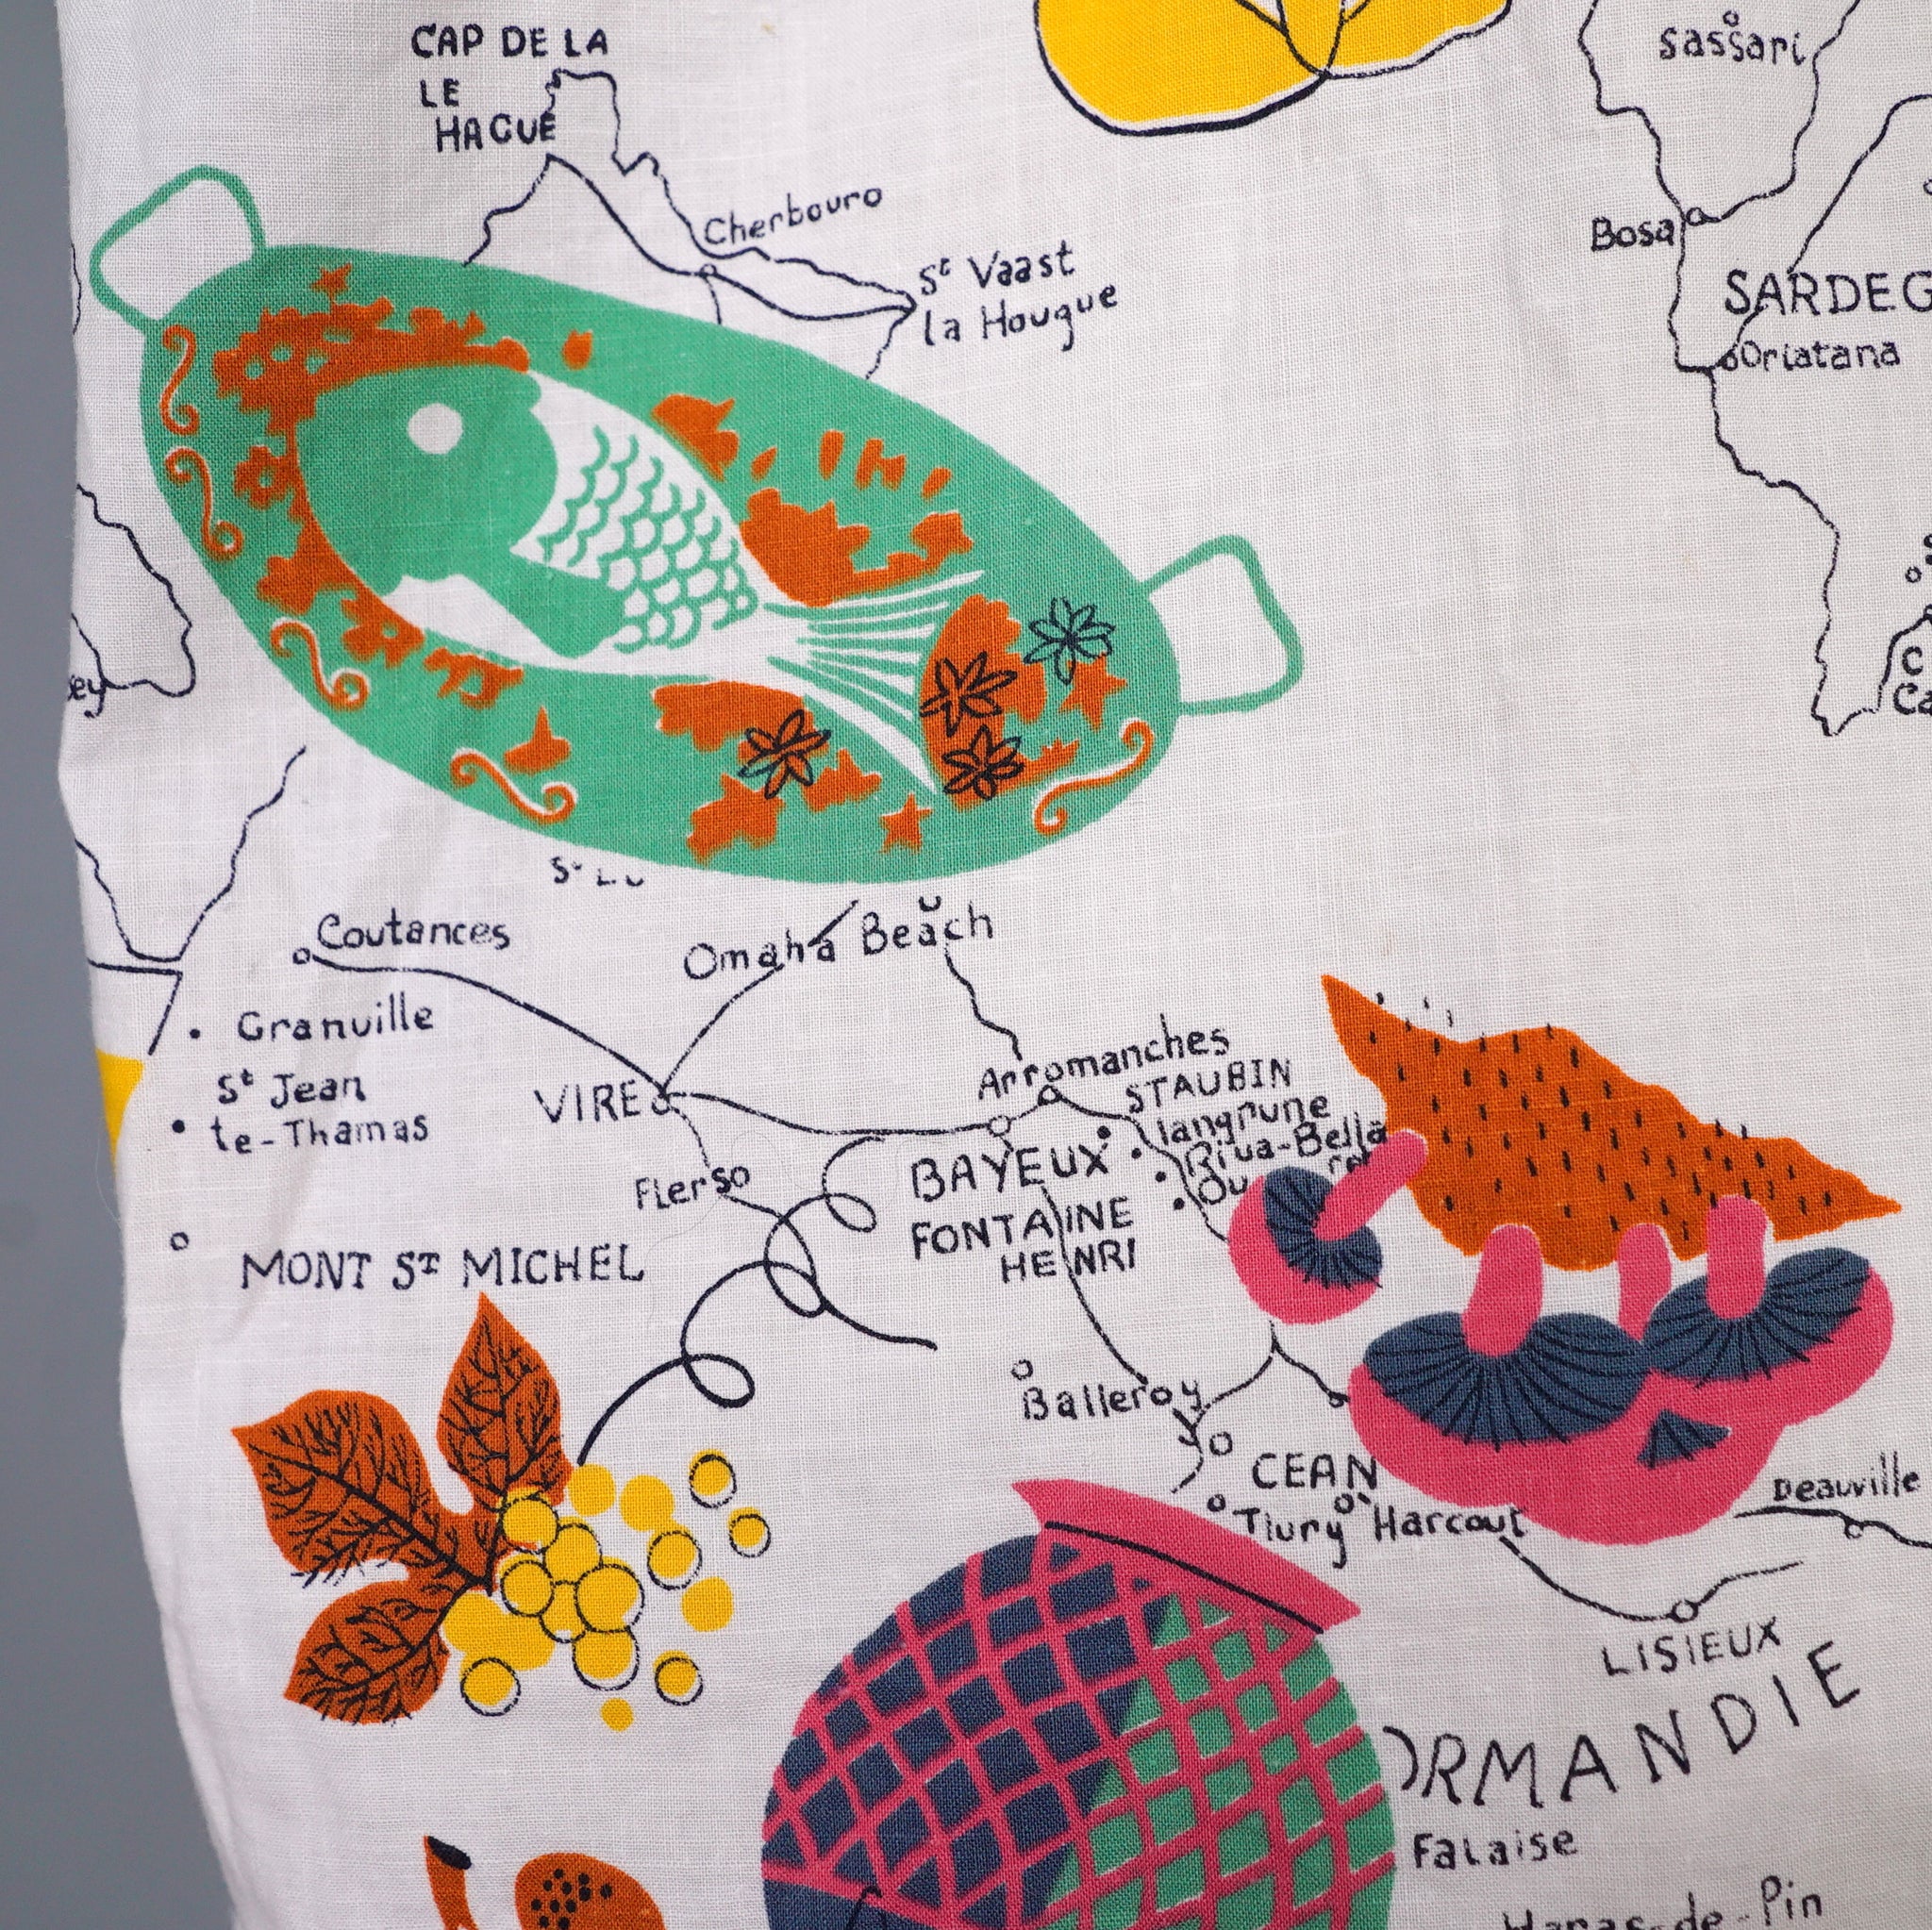 CAP DE LA
LE
HAGUE
Cherbouro
St Vaast
la Hougue
Sassari
Bosa
SARDEG
Oriatana
C
Ca
ey
St Lo
Coutances
Omaha Beach
Granville
St Jean
te-Thamas
VIRE
Arromanches
STAUBIN
langrune
Riva-Bella
re
Ou
BAYEUX
Flerso
FONTAINE
HENRI
MONT ST MICHEL
Balleroy
CEAN
Tiury Harcout
Deauville
LISIEUX
ORMANDIE
Falaise
Haras-de-Pin